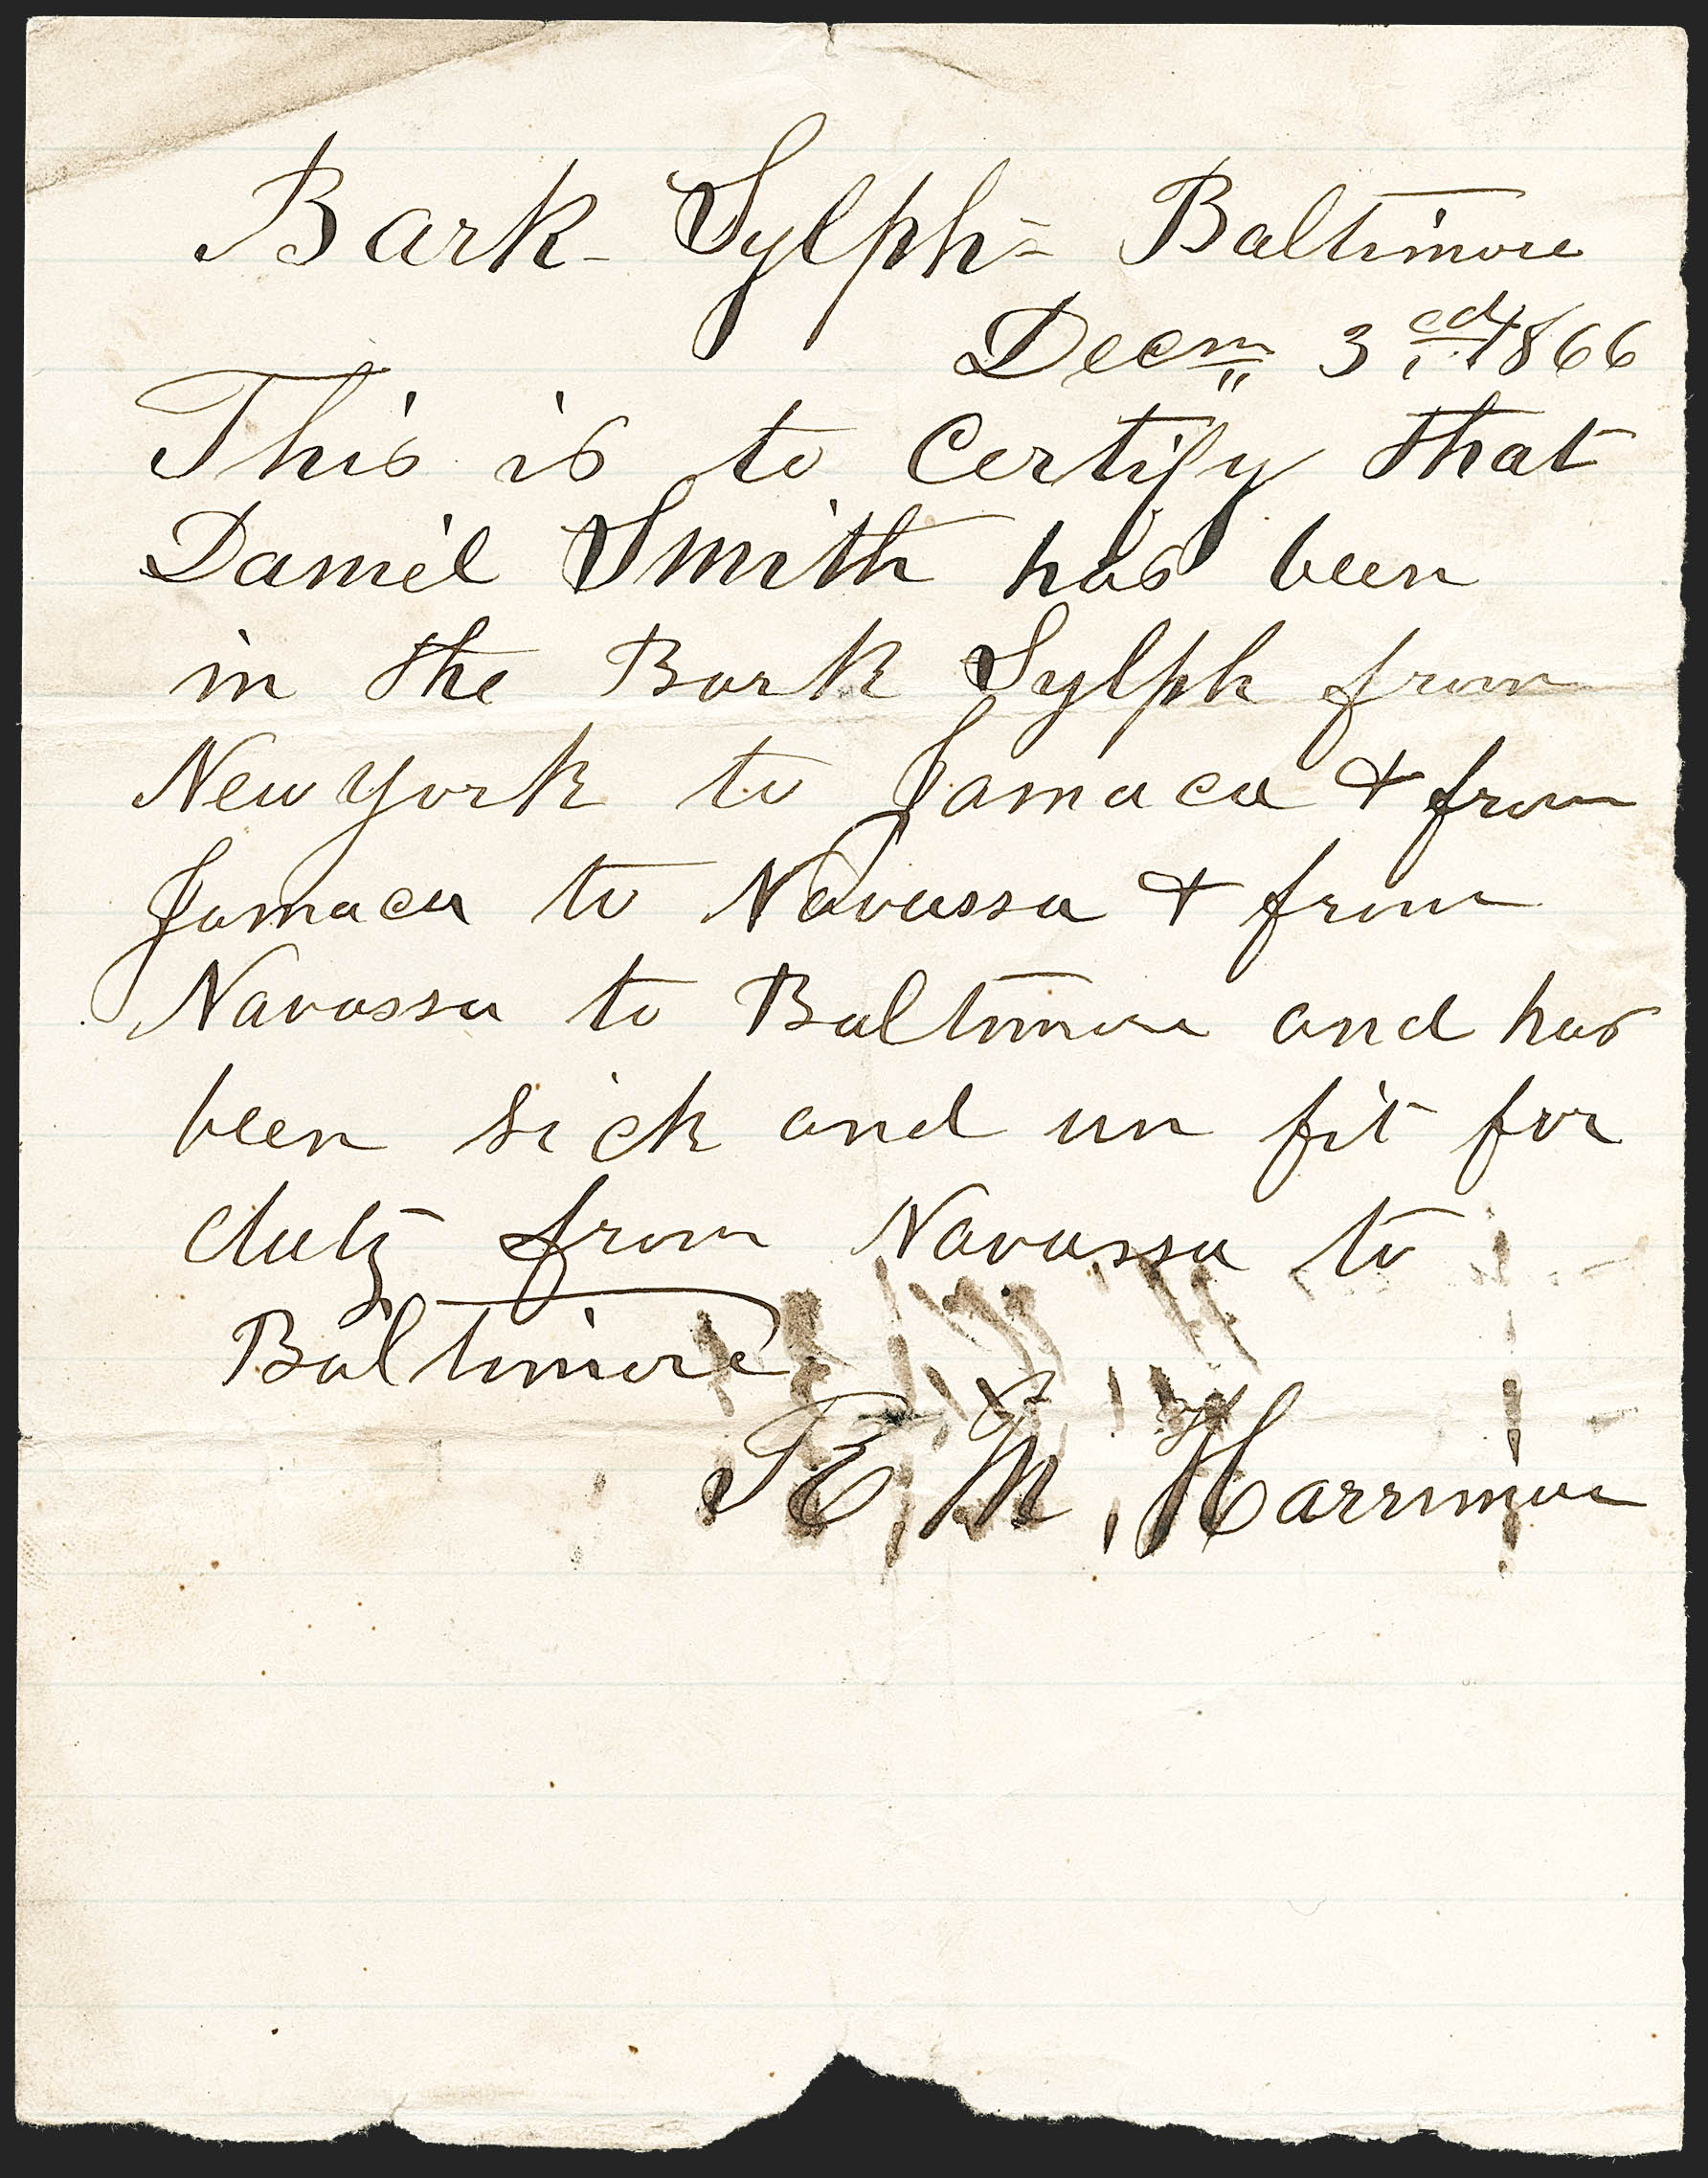 Bark - Sylph = Baltimore
Decm 3cd 1866
This is to Certify that
Daniel Smith has been
in the Bark Sylph from
New York to Jamaca & from
Jamaca to Navassa & from
Navassa to Baltimore and has
been sick and un fit for
duty from Navassa to
Baltimore
R, M, Harriman